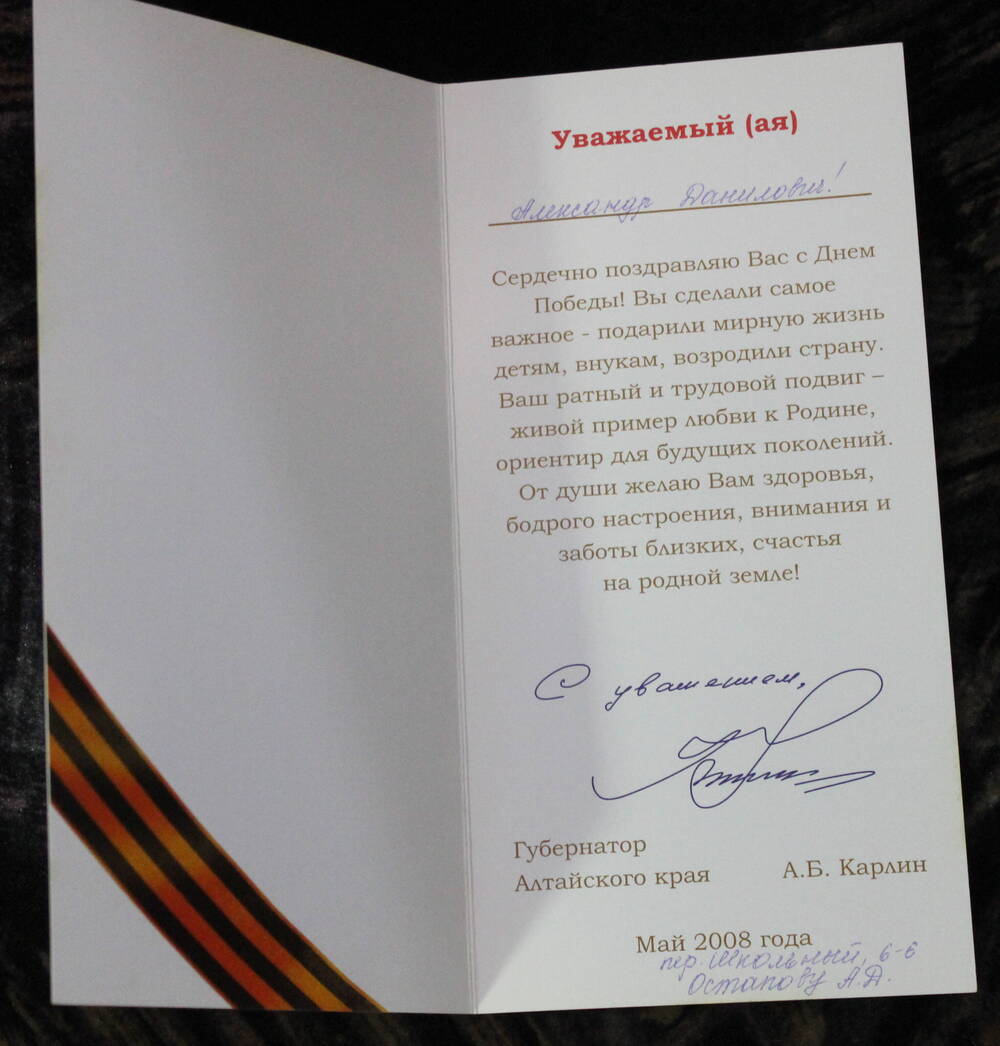 Уважаемый (ая)
Александр Данилович!
Сердечно поздравляю Вас с Днем
Победы! Вы сделали самое
важное - подарили мирную жизнь
детям, внукам, возродили страну.
Ваш ратный и трудовой подвиг –
живой пример любви к Родине,
ориентир для будущих поколений.
От души желаю Вам здоровья,
бодрого настроения, внимания и
заботы близких, счастья
на родной земле!
С уважением,
Губернатор
Алтайского края А.Б. Карлин
Май 2008 года
пер. Школьный, 6-6
Остапову А.Д.